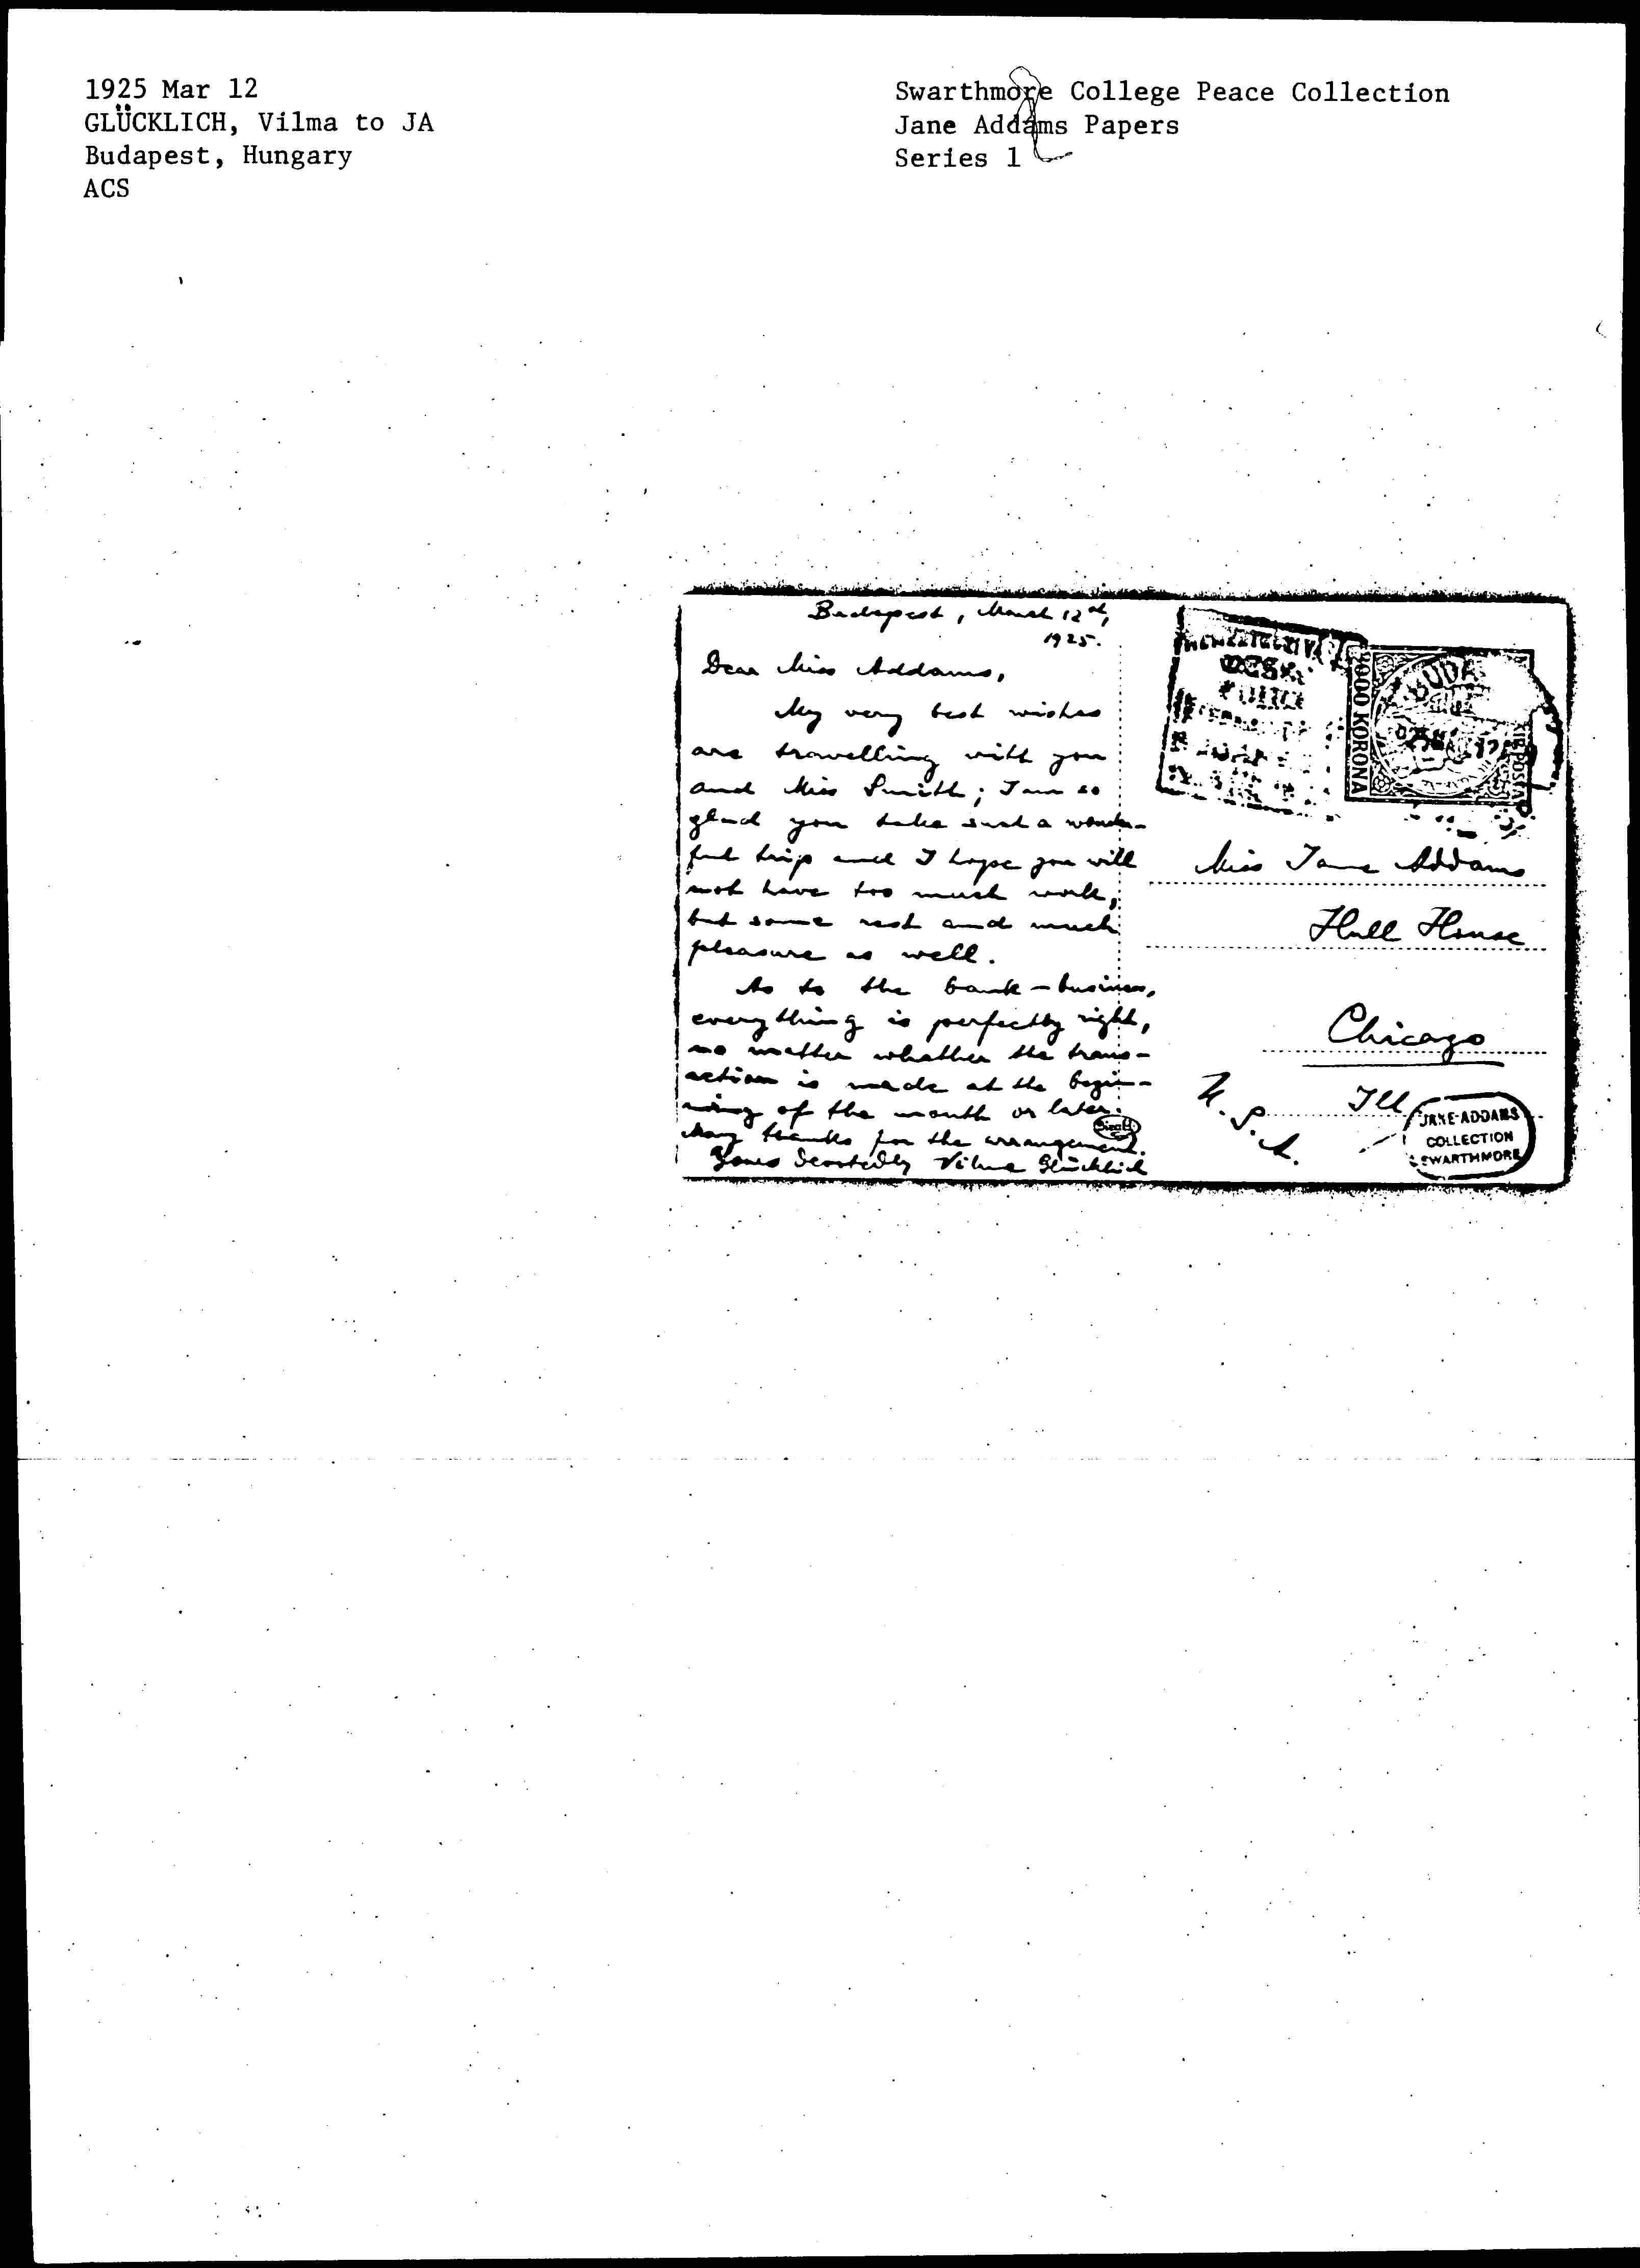 1925 Mar 12
GLÜCKLICH, Vilma to JA
Budapest, Hungary
ACS
Swarthmore College Peace Collection
Jane Addams Papers
Series 1
Budapest, March 12th,
1925.
Dear Miss Addams,
My very best wishes
are travelling with you
and Miss Smith; I am so
glad you take such a wonder-
ful trip and I hope you will
not have too much work,
but some rest and much
pleasure as well.
As to the bank-business,
everything is perfectly right,
no matter whether the trans-
action is made at the begin-
ning of the month or later.
Many thanks for the arrangement.
Yours devotedly Vilma Glücklich
2000 KORONA
KIR. POSTA
BUDA
Miss Jane Addams
Hull House
Chicago
Ill
U. S. A.
JANE ADDAMS
COLLECTION
SWARTHMORE